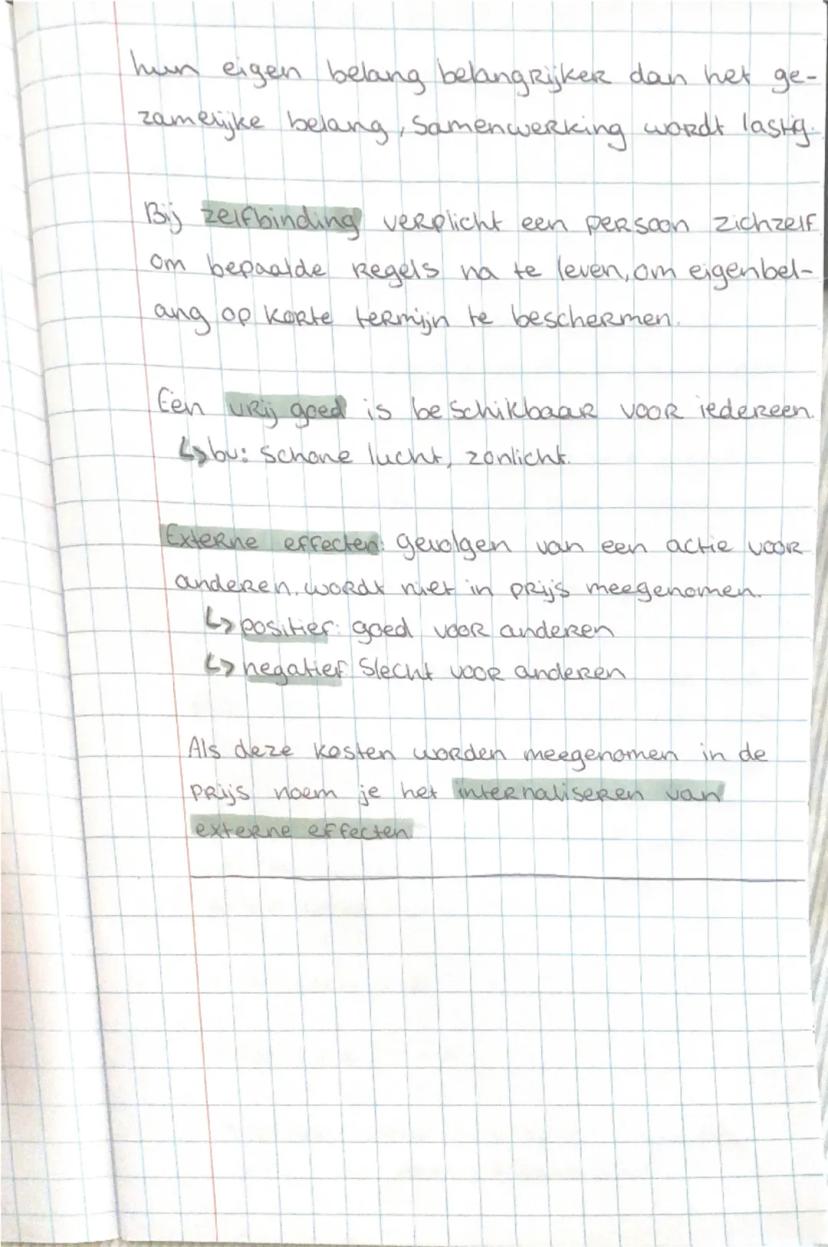 hun eigen belang belangrijker dan het ge-
zamelijke belang, samenwerking wordt lastig.
Bij zelfbinding verplicht een persoon zichzelf
om bepaalde regels na te leven, om eigenbel-
ang op korte termijn te beschermen.
Een vrij goed is beschikbaar voor iedereen.
↳ bv: schone lucht, zonlicht.
Externe effecten: gevolgen van een actie voor
anderen. wordt niet in prijs meegenomen.
↳ positief: goed voor anderen
↳ negatief slecht voor anderen
Als deze kosten worden meegenomen in de
prijs noem je het internaliseren van
externe effecten